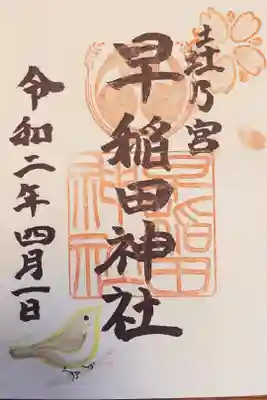 壵乃宮
早稲田神社
令和二年四月一日
早稲田
神社